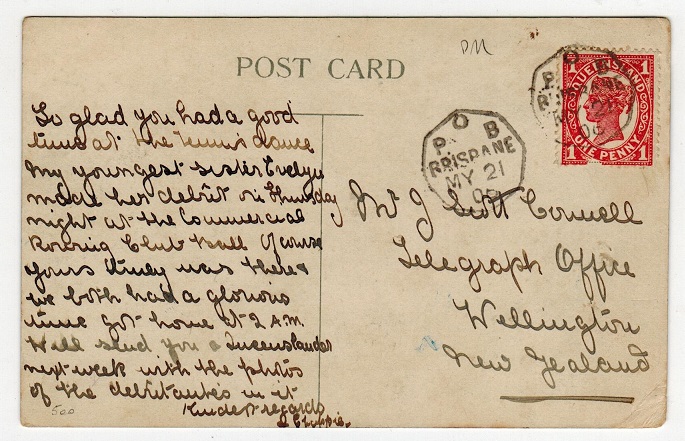 PM
POST CARD
So glad you had a good
time at the Tennis dance
My youngest sister Evelyn
made her debût on Thursday
night at the Commercial
Rowing Club ball Of course
yours truly was there &
we both had a glorious
time got home at 2 A.M.
Will send you a Queenslander
next week with the photos
of the debûtantes in it
Kindest regards
500
P. O B
BRISBANE
MY 21
QUEENSLAND
1 1
1 ONE PENNY 1
Mr J Scott Connell
Telegraph Office
Wellington
New Zealand